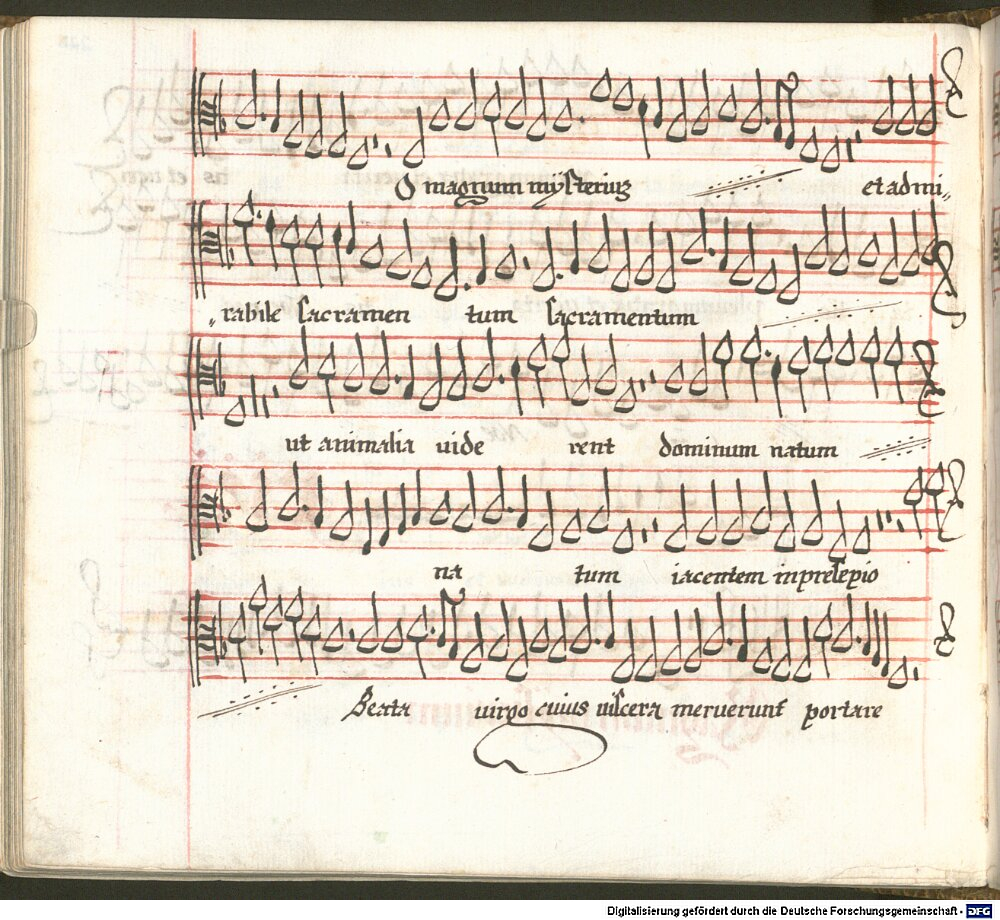 O magnum mysteriuz et admi„
„rabile sacramen tum sacramentum
ut animalia uide rent dominum natum
na tum iacentem in presepio
Beata uirgo cuius uiscera meruerunt portare
Digitalisierung gefördert durch die Deutsche Forschungsgemeinschaft - DFG